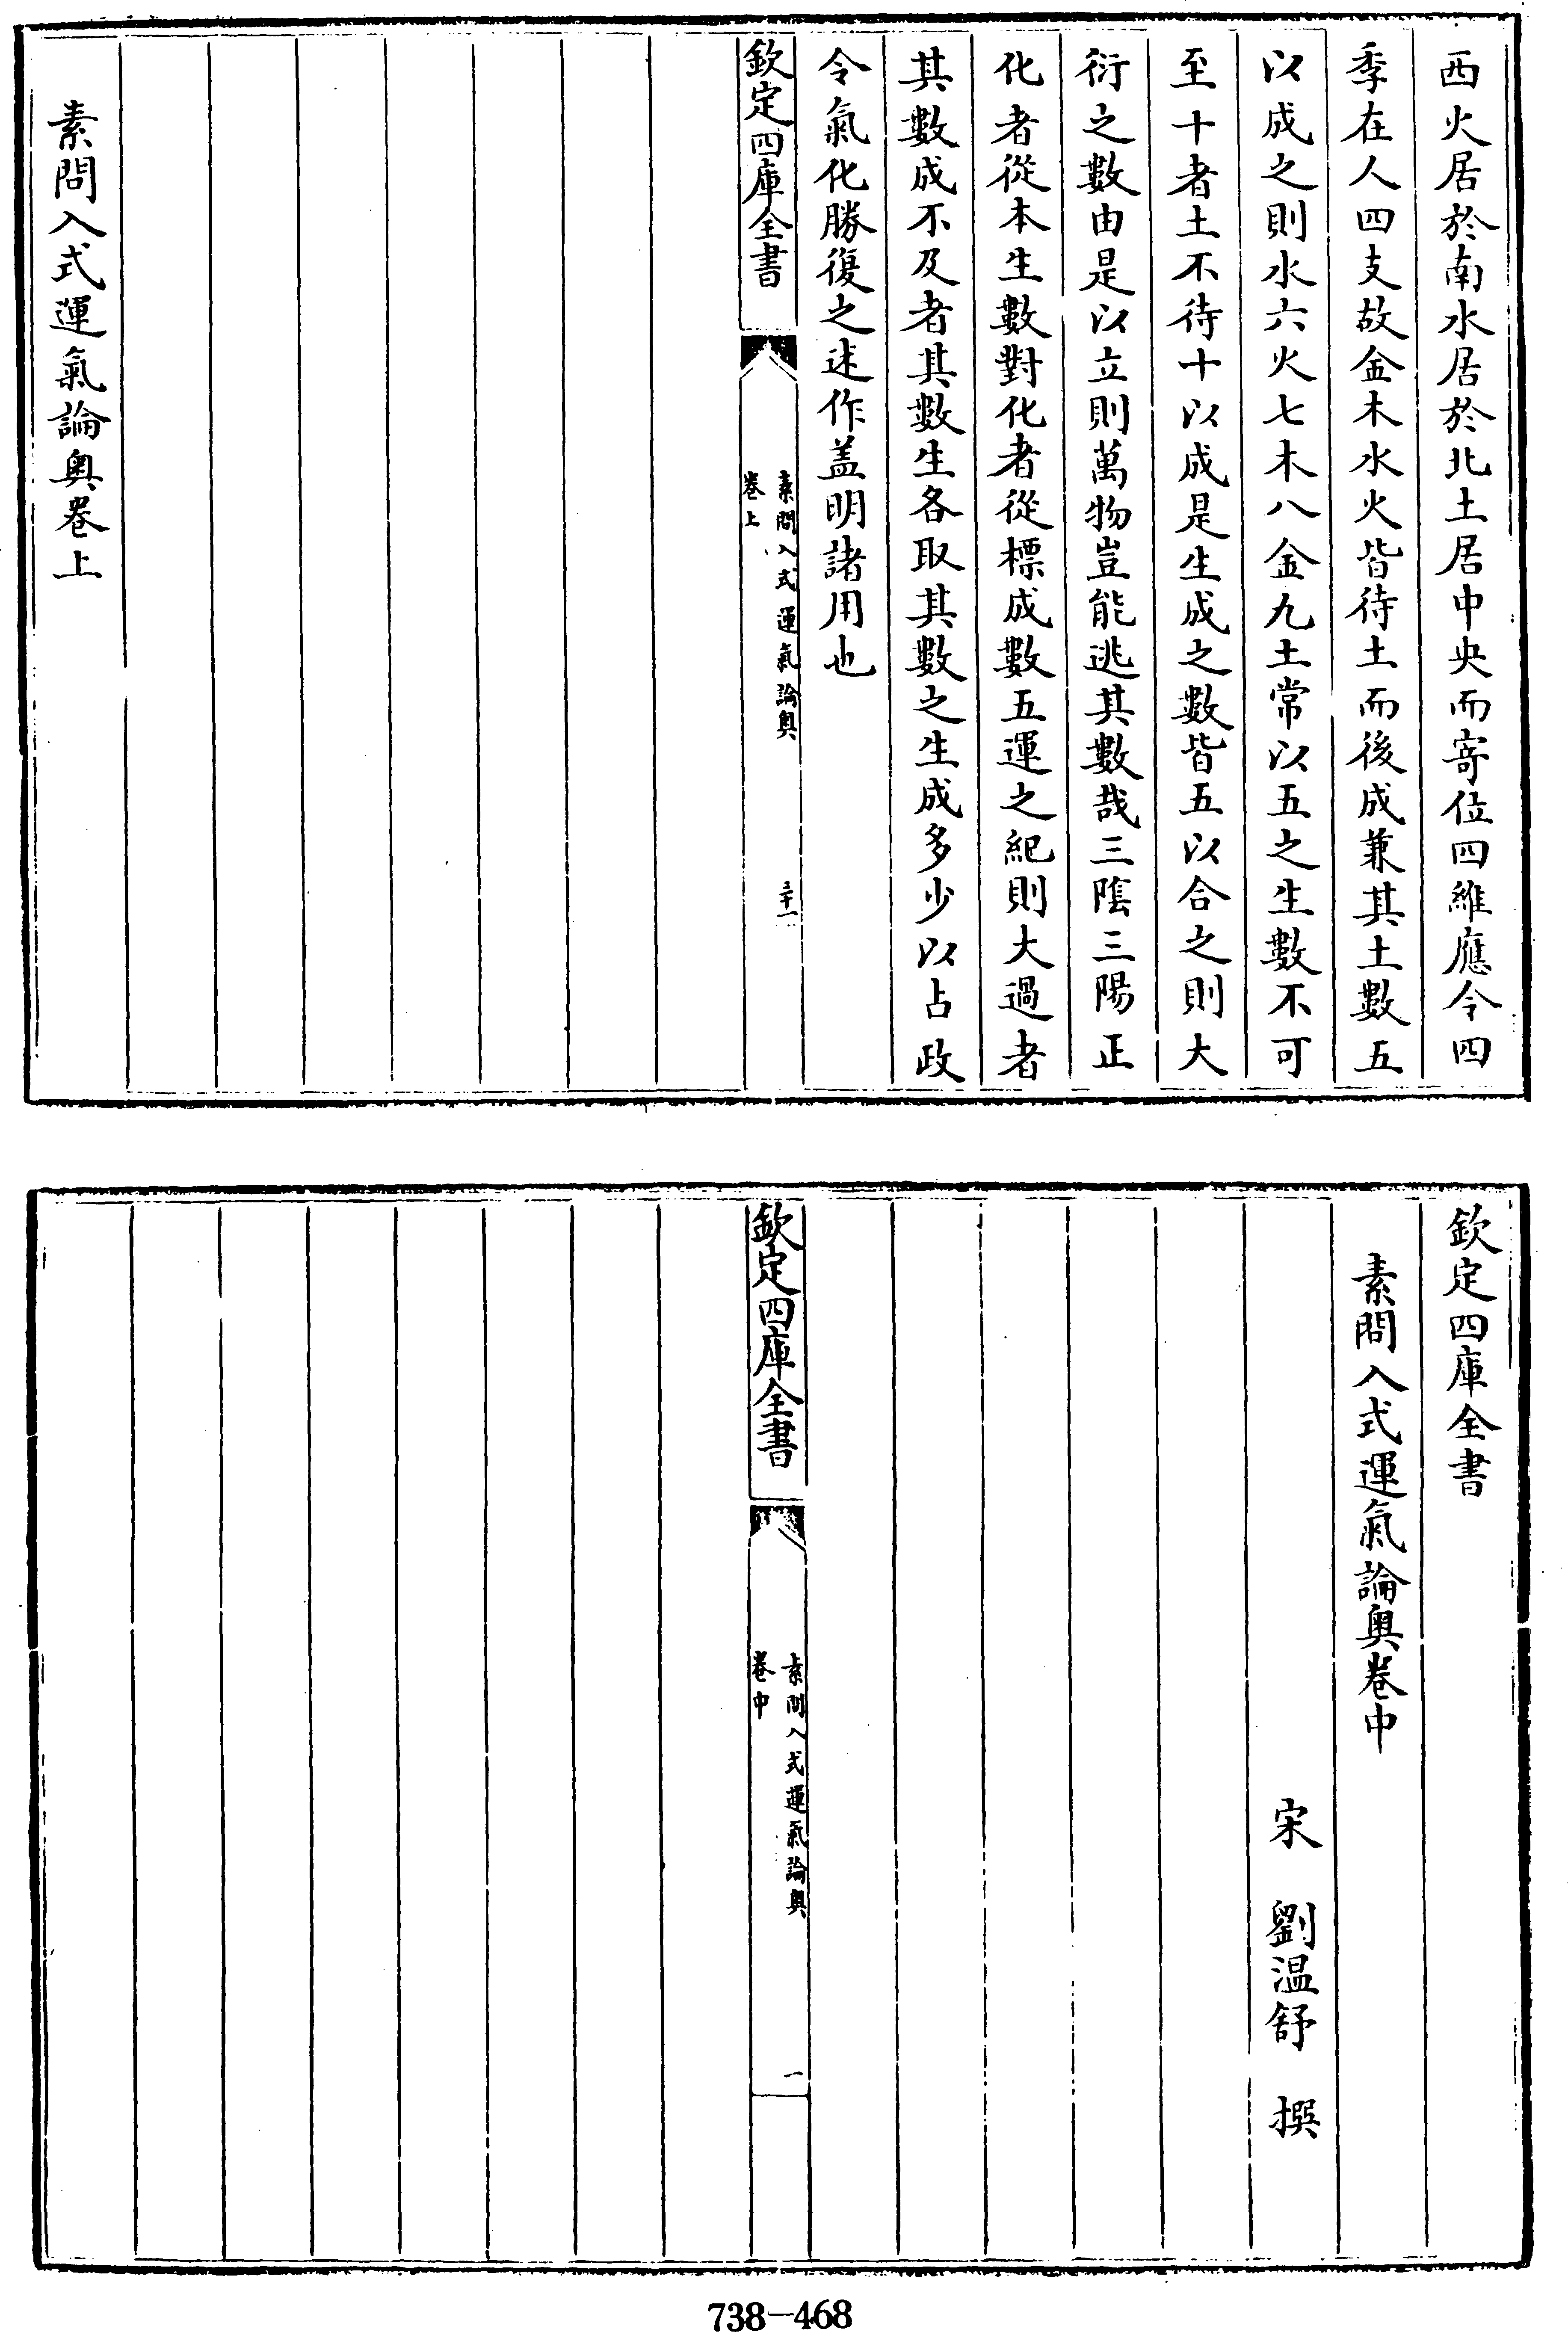 西火居於南水居於北土居中央而寄位四維應令四
季在人四支故金木水火皆待土而後成兼其土數五
以成之則水六火七木八金九土常以五之生數不可
至十者土不待十以成是生成之數皆五以合之則大
衍之數由是以立則萬物豈能逃其數哉三隂三陽正
化者從本生數對化者從標成數五運之紀則大過者
其數成不及者其數生各取其數之生成多少以占政
令氣化勝復之迷作盖明諸用也
欽定四庫全書
素問入式運氣論奥
卷上
三十一
素問入式運氣論奥卷上
欽定四庫全書
素問入式運氣論奥卷中
宋 劉温舒 撰
欽定四庫全書
素問入式運氣論奥
卷中
一
738-468